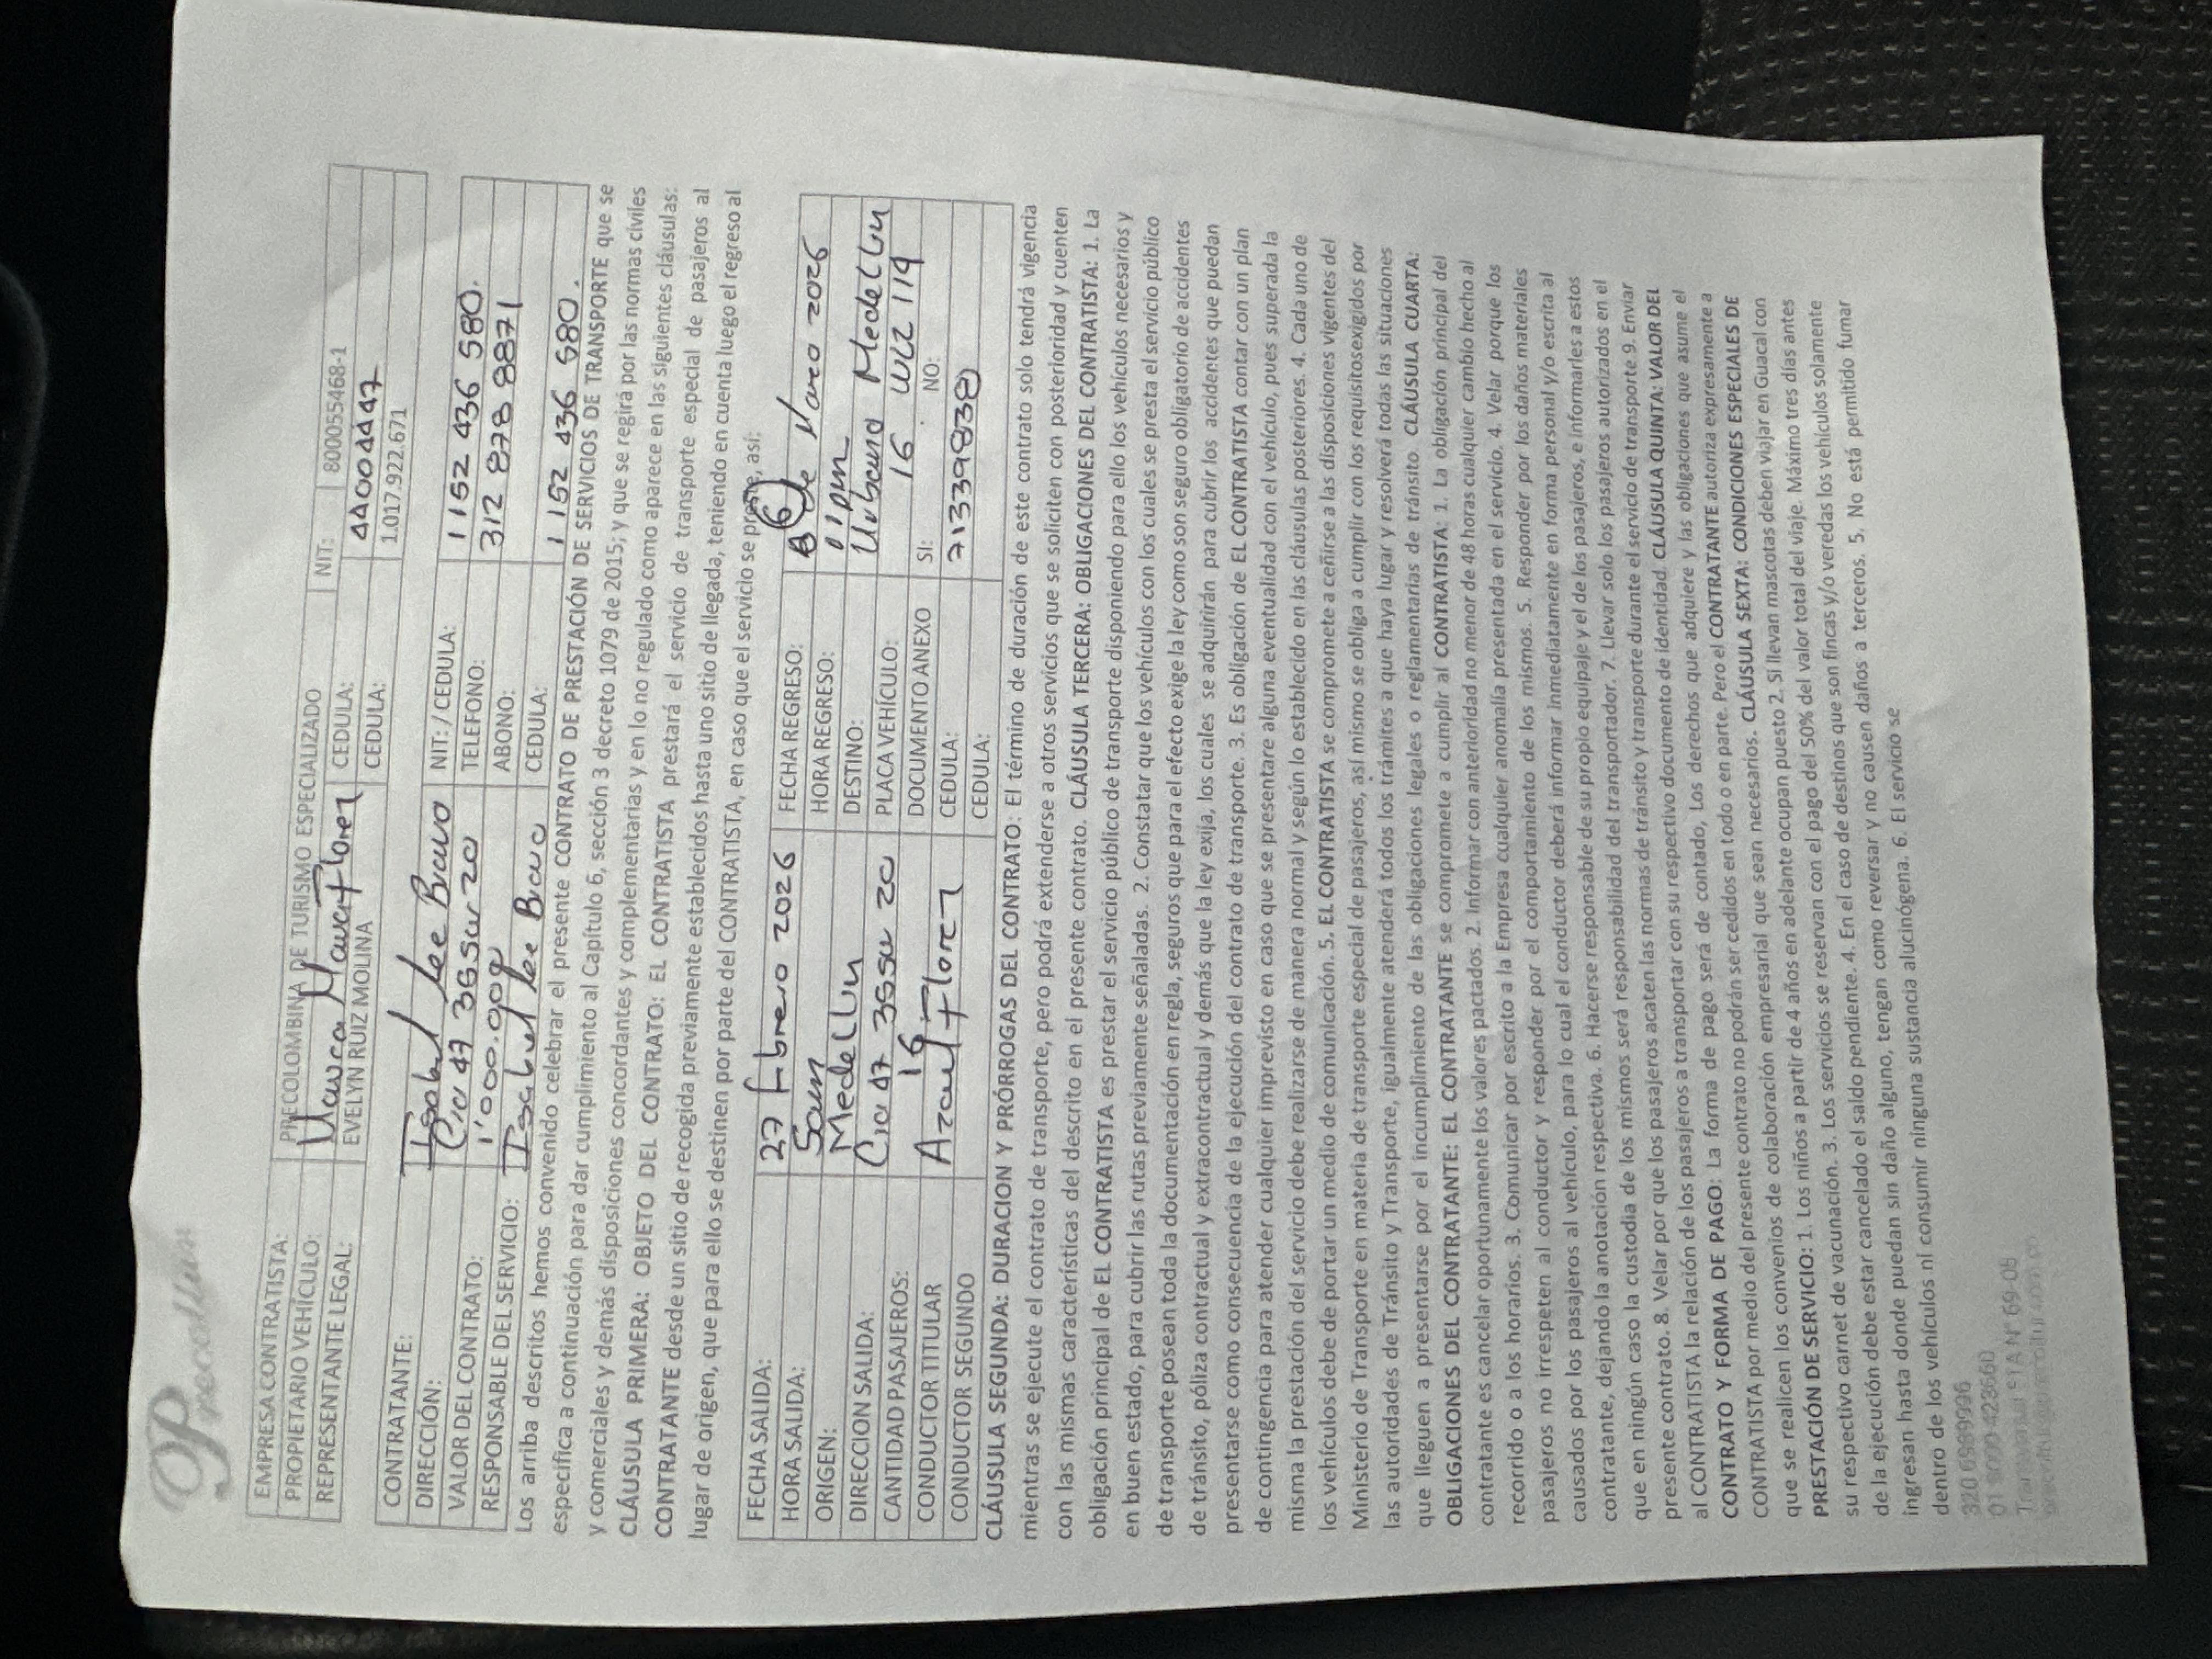 Precolombina
EMPRESA CONTRATISTA: PRECOLOMBINA DE TURISMO ESPECIALIZADO NIT: 800055468-1
PROPIETARIO VEHÍCULO: CEDULA: 44004447
REPRESENTANTE LEGAL: EVELYN RUIZ MOLINA CEDULA: 1.017.922.671
CONTRATANTE: Isabel Lee Bravo NIT: / CEDULA: 1152 436 580.
DIRECCIÓN: Cra 47 36 Sur 20 TELEFONO: 312 878 8871
VALOR DEL CONTRATO: 1'000.000 ABONO:
RESPONSABLE DEL SERVICIO: Isabel Lee Bravo CEDULA: 1 152 436 580.
Los arriba descritos hemos convenido celebrar el presente CONTRATO DE PRESTACIÓN DE SERVICIOS DE TRANSPORTE que se
especifica a continuación para dar cumplimiento al Capítulo 6, sección 3 decreto 1079 de 2015; y que se regirá por las normas civiles
y comerciales y demás disposiciones concordantes y complementarias y en lo no regulado como aparece en las siguientes cláusulas:
CLÁUSULA PRIMERA: OBJETO DEL CONTRATO: EL CONTRATISTA prestará el servicio de transporte especial de pasajeros al
CONTRATANTE desde un sitio de recogida previamente establecidos hasta uno sitio de llegada, teniendo en cuenta luego el regreso al
lugar de origen, que para ello se destinen por parte del CONTRATISTA, en caso que el servicio se preste, así:
FECHA SALIDA: 27 Febrero 2026 FECHA REGRESO: 6 de Marzo 2026
HORA SALIDA: 5am HORA REGRESO: pm
ORIGEN: Medellin DESTINO: Urbano Medellin
DIRECCION SALIDA: Cra 47 35 Sur 20 PLACA VEHÍCULO: 16 WLZ 119
CANTIDAD PASAJEROS: 16 DOCUMENTO ANEXO SI: NO:
CONDUCTOR TITULAR CEDULA: 71339838
CONDUCTOR SEGUNDO CEDULA:
CLÁUSULA SEGUNDA: DURACION Y PRÓRROGAS DEL CONTRATO: El término de duración de este contrato solo tendrá vigencia
mientras se ejecute el contrato de transporte, pero podrá extenderse a otros servicios que se soliciten con posterioridad y cuenten
con las mismas características del descrito en el presente contrato. CLÁUSULA TERCERA: OBLIGACIONES DEL CONTRATISTA: 1. La
obligación principal de EL CONTRATISTA es prestar el servicio público de transporte disponiendo para ello los vehículos necesarios y
en buen estado, para cubrir las rutas previamente señaladas. 2. Constatar que los vehículos con los cuales se presta el servicio público
de transporte posean toda la documentación en regla, seguros que para el efecto exige la ley como son seguro obligatorio de accidentes
de tránsito, póliza contractual y extracontractual y demás que la ley exija, los cuales se adquirirán para cubrir los accidentes que puedan
presentarse como consecuencia de la ejecución del contrato de transporte. 3. Es obligación de EL CONTRATISTA contar con un plan
de contingencia para atender cualquier imprevisto en caso que se presentare alguna eventualidad con el vehículo, pues superada la
misma la prestación del servicio debe realizarse de manera normal y según lo establecido en las cláusulas posteriores. 4. Cada uno de
los vehículos debe de portar un medio de comunicación. 5. EL CONTRATISTA se compromete a ceñirse a las disposiciones vigentes del
Ministerio de Transporte en materia de transporte especial de pasajeros, así mismo se obliga a cumplir con los requisitosexigidos por
las autoridades de Tránsito y Transporte, igualmente atenderá todos los trámites a que haya lugar y resolverá todas las situaciones
que lleguen a presentarse por el incumplimiento de las obligaciones legales o reglamentarias de tránsito. CLÁUSULA CUARTA:
OBLIGACIONES DEL CONTRATANTE: EL CONTRATANTE se compromete a cumplir al CONTRATISTA: 1. La obligación principal del
contratante es cancelar oportunamente los valores pactados. 2. Informar con anterioridad no menor de 48 horas cualquier cambio hecho al
recorrido o a los horarios. 3. Comunicar por escrito a la Empresa cualquier anomalía presentada en el servicio. 4. Velar porque los
pasajeros no irrespeten al conductor y responder por el comportamiento de los mismos. 5. Responder por los daños materiales
causados por los pasajeros al vehículo, para lo cual el conductor deberá informar inmediatamente en forma personal y/o escrita al
contratante, dejando la anotación respectiva. 6. Hacerse responsable de su propio equipaje y el de los pasajeros, e informarles a estos
que en ningún caso la custodia de los mismos será responsabilidad del transportador. 7. Llevar solo los pasajeros autorizados en el
presente contrato. 8. Velar por que los pasajeros acaten las normas de tránsito y transporte durante el servicio de transporte 9. Enviar
al CONTRATISTA la relación de los pasajeros a transportar con su respectivo documento de identidad. CLÁUSULA QUINTA: VALOR DEL
CONTRATO Y FORMA DE PAGO: La forma de pago será de contado, Los derechos que adquiere y las obligaciones que asume el
CONTRATISTA por medio del presente contrato no podrán ser cedidos en todo o en parte. Pero el CONTRATANTE autoriza expresamente a
que se realicen los convenios de colaboración empresarial que sean necesarios. CLÁUSULA SEXTA: CONDICIONES ESPECIALES DE
PRESTACIÓN DE SERVICIO: 1. Los niños a partir de 4 años en adelante ocupan puesto 2. Si llevan mascotas deben viajar en Guacal con
su respectivo carnet de vacunación. 3. Los servicios se reservan con el pago del 50% del valor total del viaje. Máximo tres días antes
de la ejecución debe estar cancelado el saldo pendiente. 4. En el caso de destinos que son fincas y/o veredas los vehículos solamente
ingresan hasta donde puedan sin daño alguno, tengan como reversar y no causen daños a terceros. 5. No está permitido fumar
dentro de los vehículos ni consumir ninguna sustancia alucinógena. 6. El servicio se
320 6989996
01 8000 423660